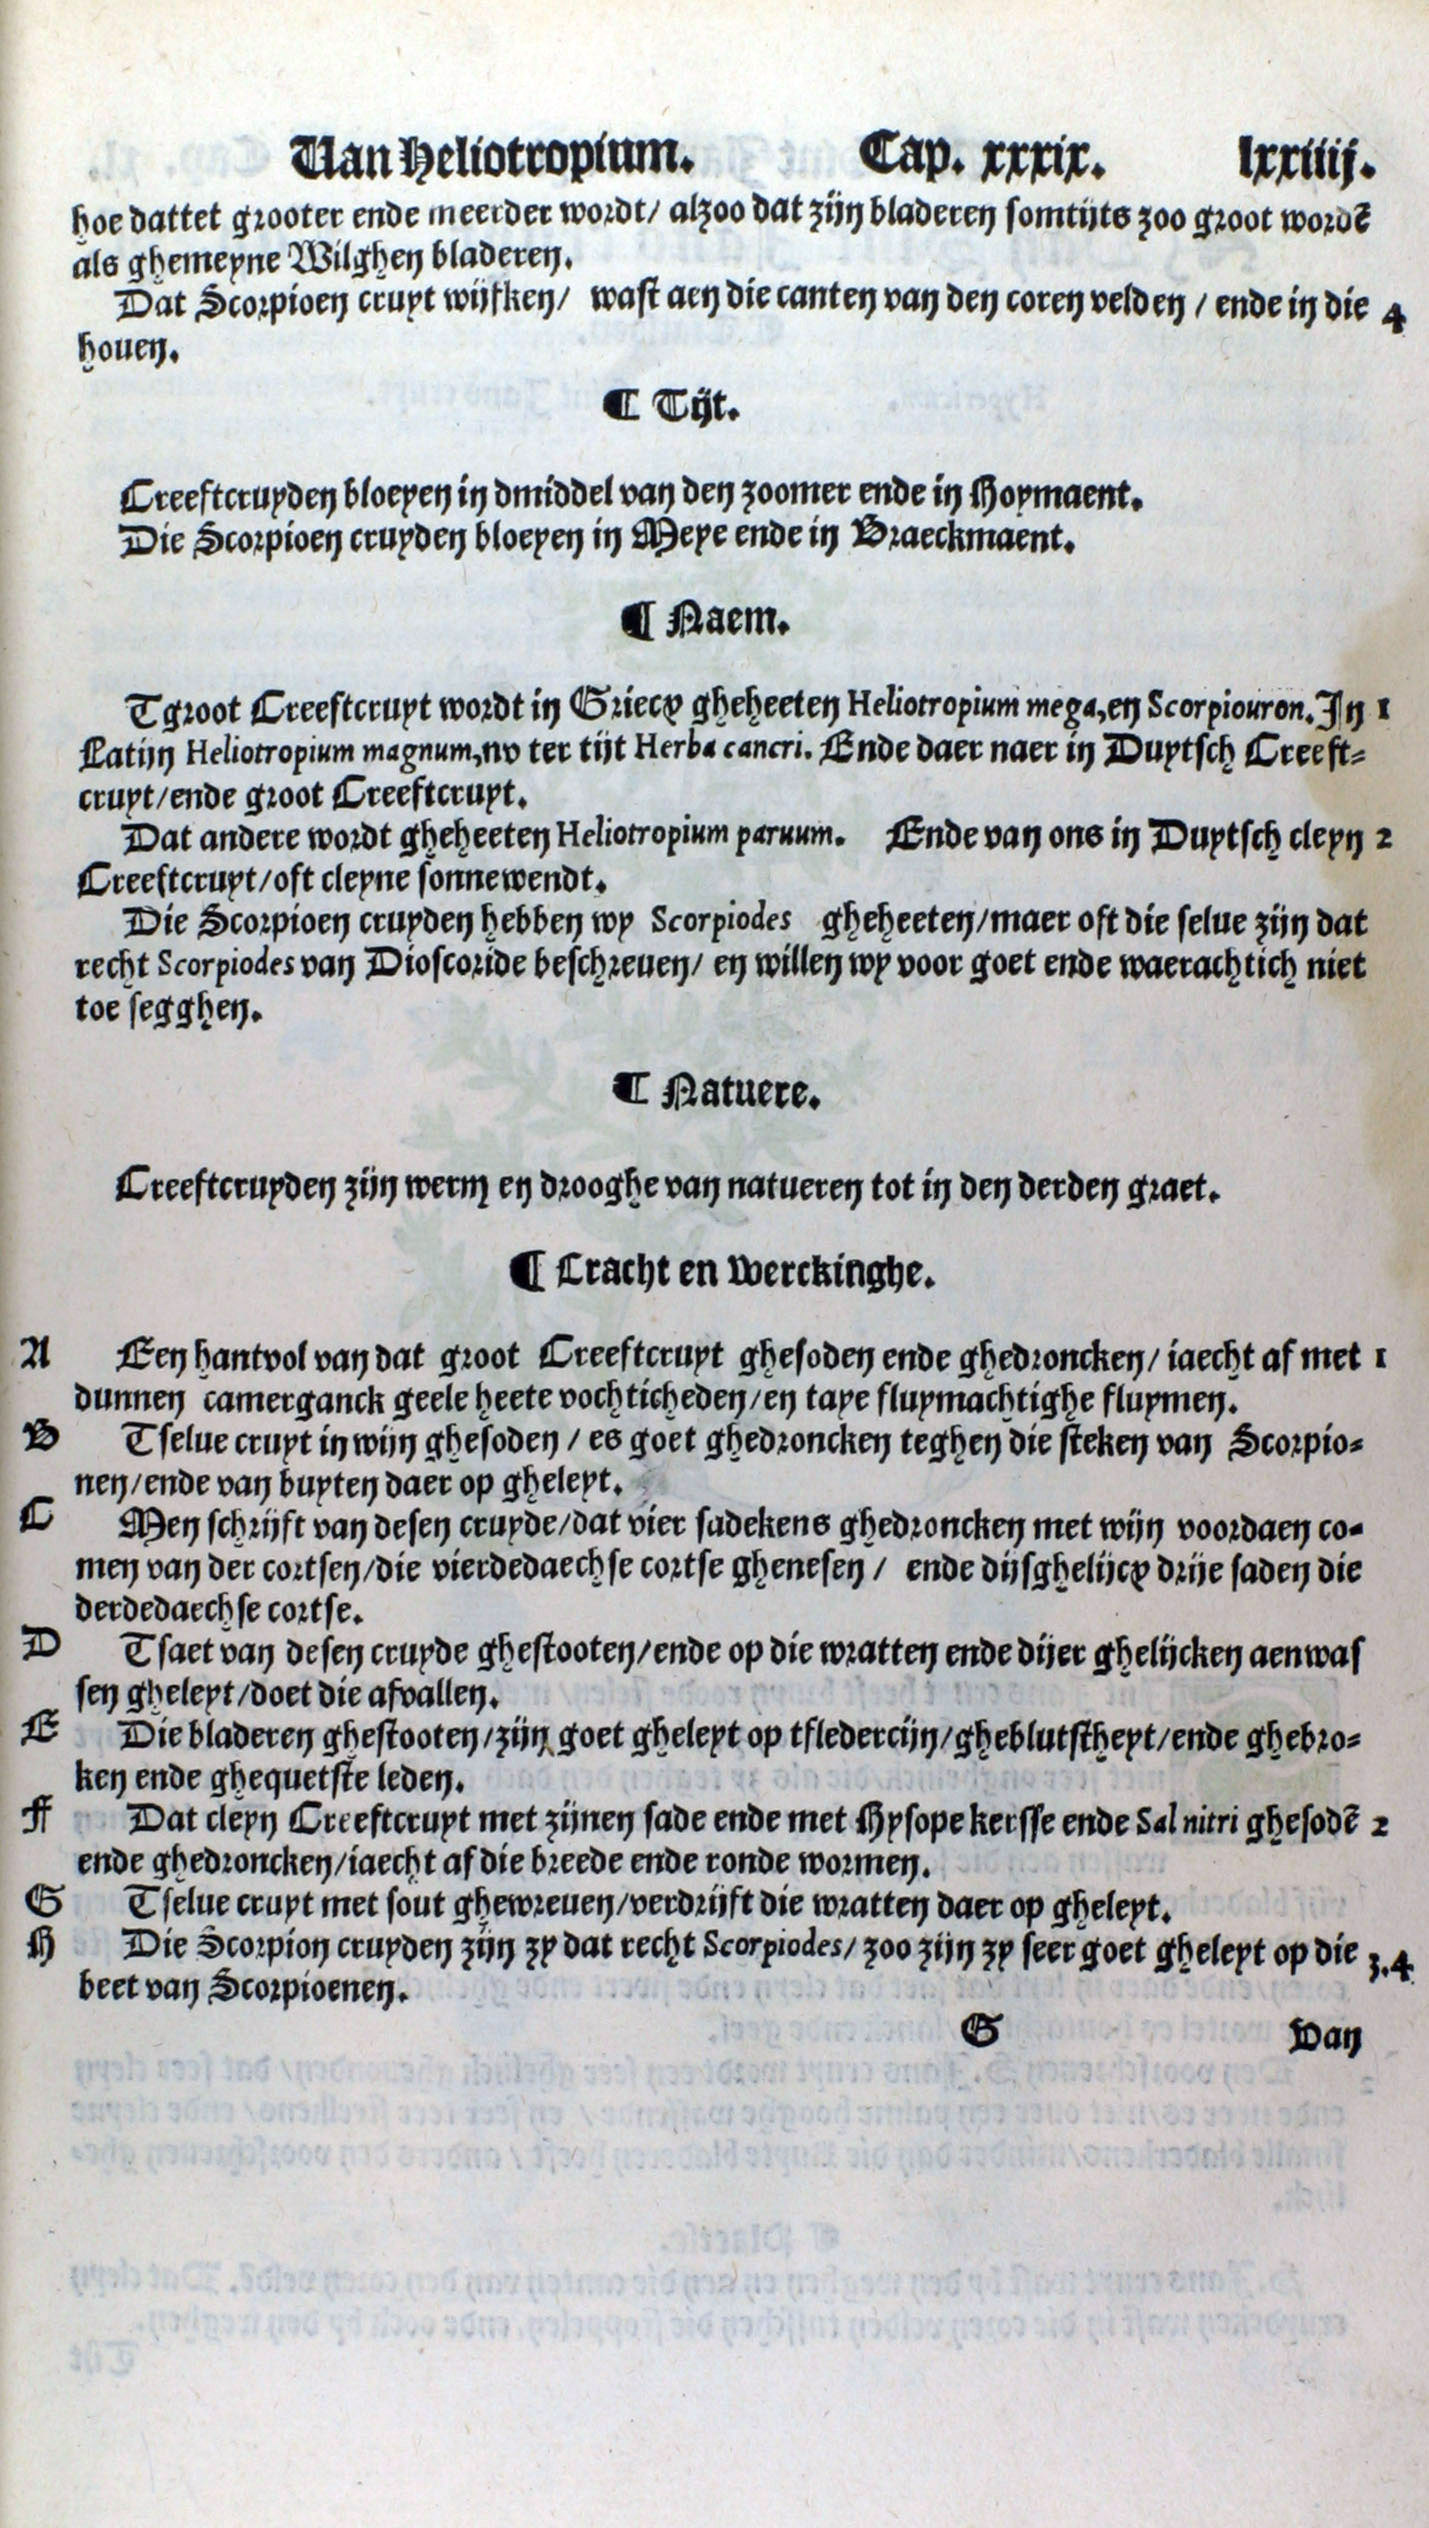 Van Heliotropium. Cap. xxxix. lxxiiij.
hoe dattet grooter ende meerder wordt/ alzoo dat zijn bladeren somtijts zoo groot wordẽ
als ghemeyne Wilghen bladeren.
Dat Scorpioen cruyt wijfken/ wast aen die canten van den coren velden / ende in die 4
houen.
¶ Tijt.
Creeftcruyden bloeyen in dmiddel van den zoomer ende in Hoymaent.
Die Scorpioen cruyden bloeyen in Meye ende in Braeckmaent.
¶ Naem.
Tgroot Creeftcruyt wordt in Griecx gheheeten Heliotropium mega, en Scorpiouron. In 1
Latijn Heliotropium magnum, nv ter tijt Herba cancri. Ende daer naer in Duytsch Creeft=
cruyt/ende groot Creeftcruyt.
Dat andere wordt gheheeten Heliotropium paruum. Ende van ons in Duytsch cleyn 2
Creeftcruyt/oft cleyne sonnewendt.
Die Scorpioen cruyden hebben wy Scorpiodes gheheeten/maer oft die selue zijn dat
recht Scorpiodes van Dioscoride beschreuen/ en willen wy voor goet ende waerachtich niet
toe segghen.
¶ Natuere.
Creeftcruyden zijn werm en drooghe van natueren tot in den derden graet.
¶ Cracht en Werckinghe.
A Een hantvol van dat groot Creeftcruyt ghesoden ende ghedroncken/ iaecht af met 1
dunnen camerganck geele heete vochticheden/en taye fluymachtighe fluymen.
B Tselue cruyt in wijn ghesoden / es goet ghedroncken teghen die steken van Scorpio=
nen/ende van buyten daer op gheleyt.
C Men schrijft van desen cruyde/dat vier sadekens ghedroncken met wijn voordaen co=
men van der cortsen/die vierdedaechse cortse ghenesen / ende dijsghelijcx drije saden die
derdedaechse cortse.
D Tsaet van desen cruyde ghestooten/ende op die wratten ende dijer ghelijcken aenwas
sen gheleyt/doet die afvallen.
E Die bladeren ghestooten/zijn goet gheleyt op tfledercijn/gheblutstheyt/ende ghebro=
ken ende ghequetste leden.
F Dat cleyn Creeftcruyt met zijnen sade ende met Hysope kersse ende Sal nitri ghesodẽ 2
ende ghedroncken/iaecht af die breede ende ronde wormen.
G Tselue cruyt met sout ghewreuen/verdrijft die wratten daer op gheleyt.
H Die Scorpion cruyden zijn zy dat recht Scorpiodes/ zoo zijn zy seer goet gheleyt op die 3.4
beet van Scorpioenen.
G Van